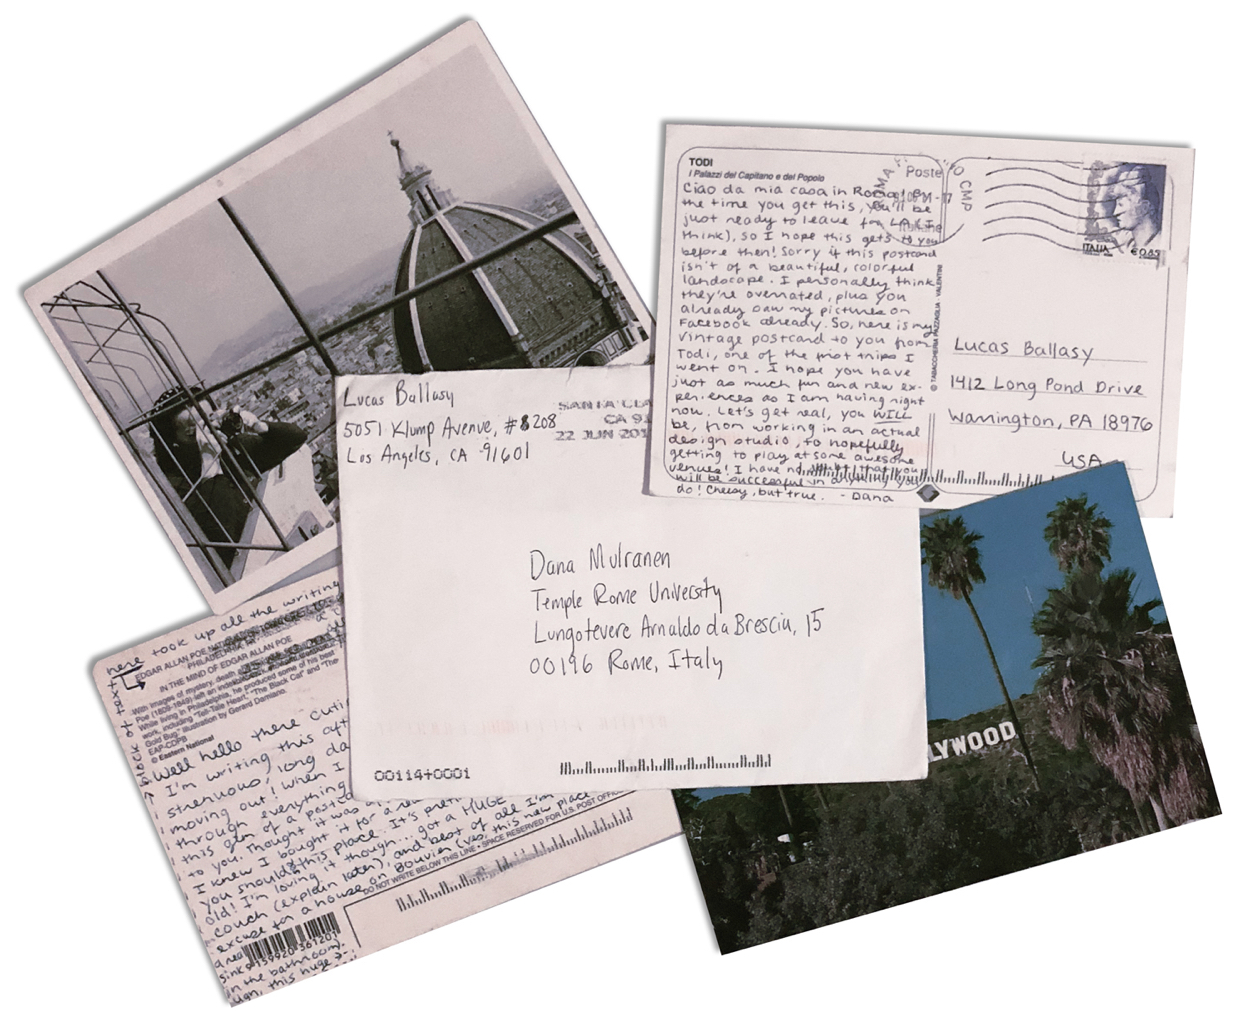 TODI
I Palazzi del Capitano e del Popolo
Ciao da mia casa in Roma! By
the time you get this, you'll be
just ready to leave for LA (I
think), so I hope this gets to you
before then! Sorry if this postcard
isn't of a beautiful, colorful
landscape. I personally think
they're overrated, plus you
already saw my pictures on
Facebook already. So, here is my
vintage postcard to you from
Todi, one of the first trips I
went on. I hope you have
just as much fun and new ex-
periences as I am having right
now. Let's get real, you WILL
be, from working in an actual
design studio, to hopefully
getting to play at some awesome
venues! I have no doubt that you
will be successful in anything you
do! Cheesy, but true. - Dana
© TABACCHERIA PAZZAGLIA - VALENTINI
Poste
Italiane
ROMA
CMP
ITALIA
€0,85
Lucas Ballasy
1412 Long Pond Drive
Warrington, PA 18976
USA
Lucas Ballasy
5051 Klump Avenue, #208
Los Angeles, CA 91601
SANTA CLA
CA 91
22 JUN 201
Dana Mulranen
Temple Rome University
Lungotevere Arnaldo da Brescia, 15
00196 Rome, Italy
00114+0001
LYWOOD
here took up all the writing
block of text
EDGAR ALLAN POE NATIONAL
PHILADELPHIA
IN THE MIND OF EDGAR ALLAN POE
With images of mystery, death a
Poe (1809-1849) left an indel
While living in Philadelphia, he produced some of his best
work, including "Tell-Tale Heart," "The Black Cat" and "The
Gold Bug." Illustration by Gerard Damiano.
EAP-CDPB
© Eastern National
Well hello there cuti
I'm writing this aft
strenuous, long da
moving out! when I
through everything
this gem of a postca
to you. Thought it was
I knew I bought it for a rea
you should this place. It's pret
old! I'm loving it though... got a HUGE
couch (explain later), and best of all I'm
excuse for a house on Bouvier (yes, this new place
sink
in the bathroom.
ugh, this huge
DO NOT WRITE BELOW THIS LINE - SPACE RESERVED FOR U.S. POST OFFIC
159920 361201